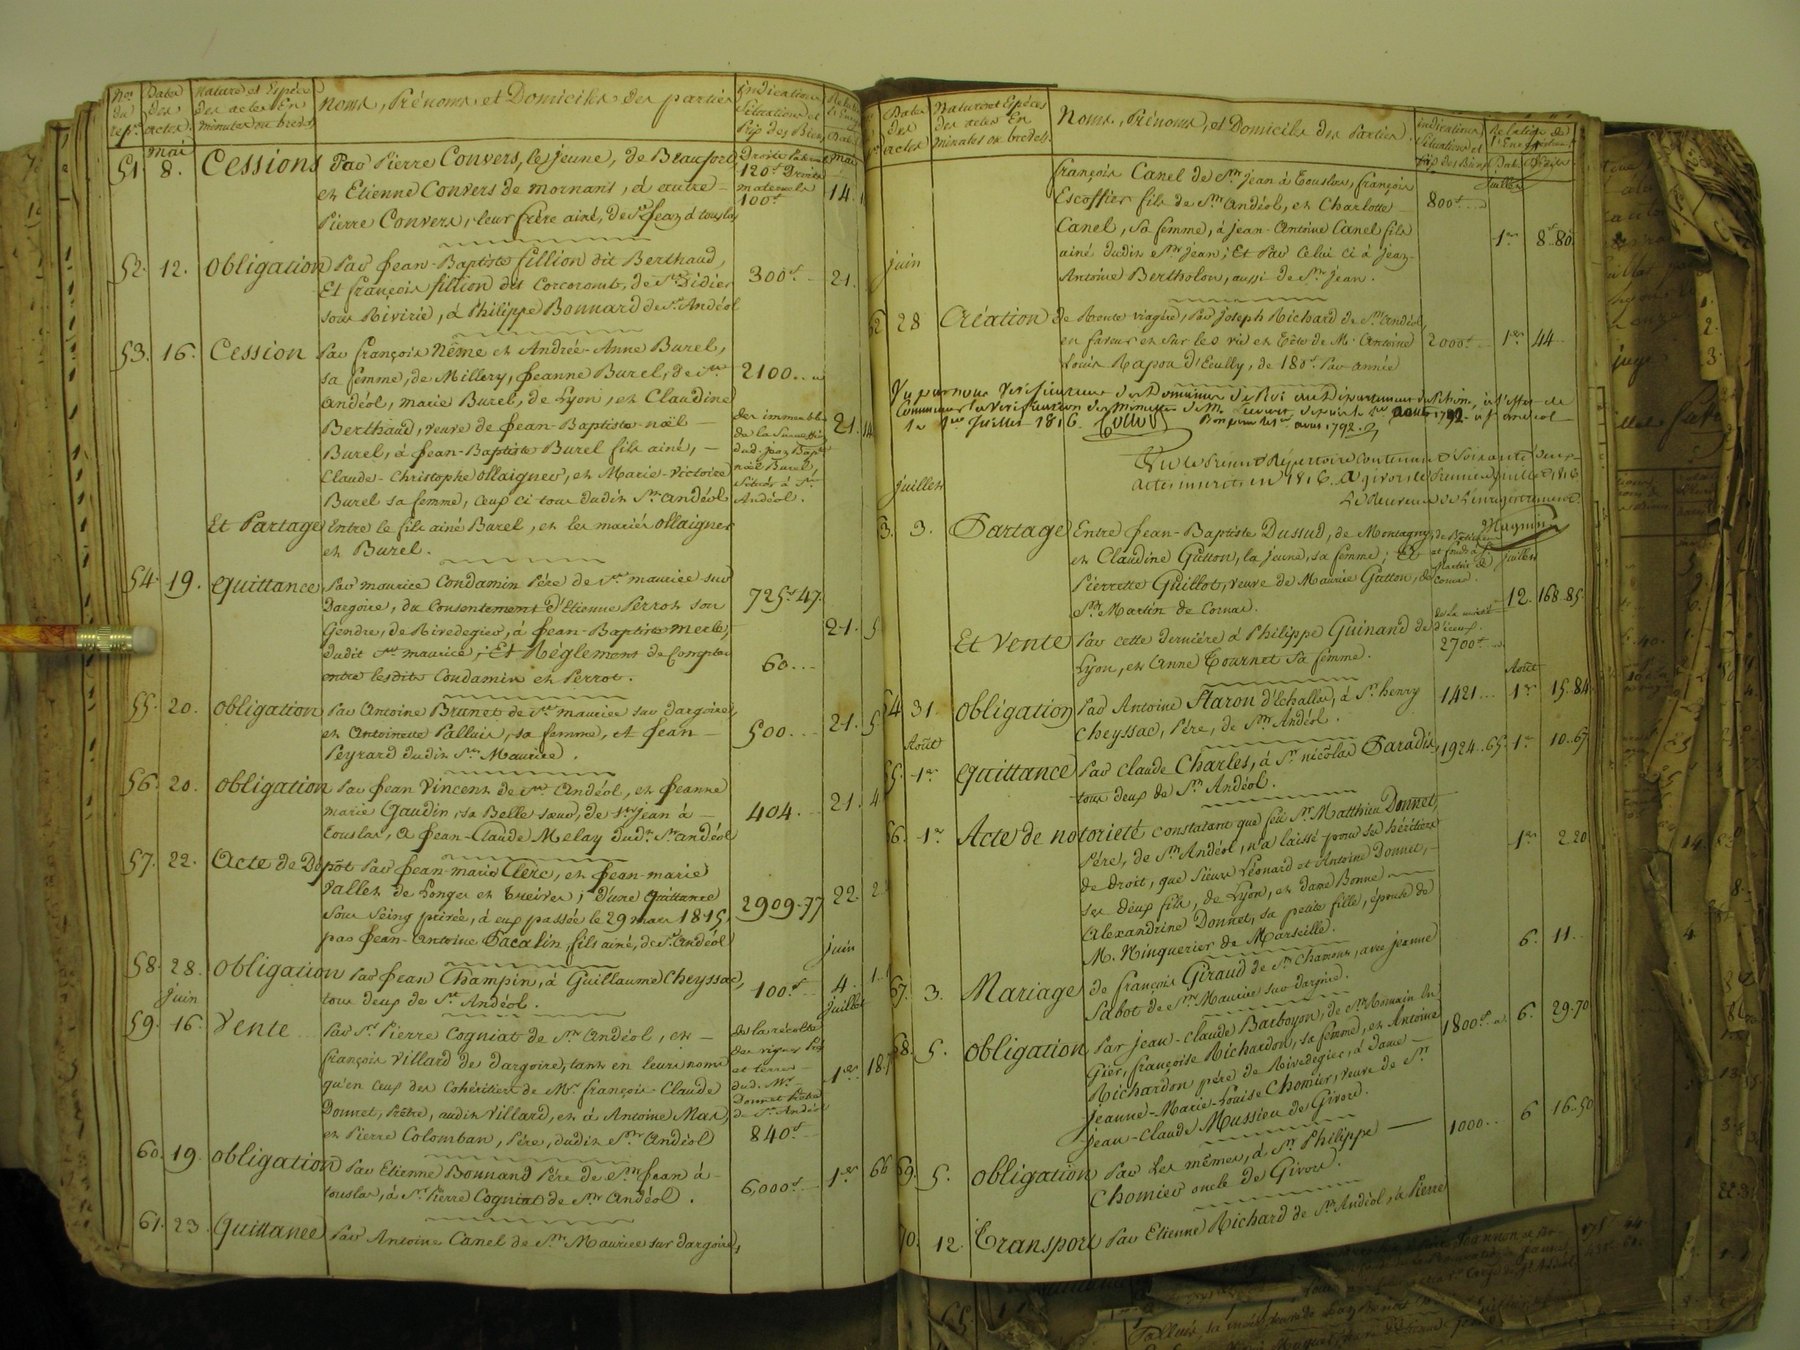 Nos du rep.re
Dates des actes
Nature et Espèce des actes En minutes ou brevets
Noms, Prénoms, et Domiciles des parties
Indications Situations et Prix des Biens
mai
51. 8. Cessions Par Pierre Convers, le jeune, de Beaufort
et Etienne Convers de mornant, à autre
Pierre Convers, leur frère ainé, de St Jean à touslas
Droits Paternels
120# Droits
maternels
100#
mai
14.
52. 12. Obligation Par Jean-Baptiste fillion dit Berthaud,
Et françois fillion dit Corcoront, de St Didier
sous Rivirie, à Philippe Bonnard de St Andéol
300# 21.
53. 16. Cession Par françois Nême et Andrée-Anne Burel,
sa femme, de Millery, Jeanne Burel, de St
andéol, marie Burel, de Lyon, et Claudine
Berthaud, veuve de Jean-Baptiste-noël
Burel, à Jean-Baptiste Burel fils ainé,
Claude-Christophe Ollaignier, et Marie-Victoire
Burel sa femme, ceux ci tous dudit St andéol
2100..
des immeubles
de la Succession
dud. Jean Bapte
noël Burel,
situés à St
Andéol.
21.
Et Partage Entre le fils ainé Burel, et les mariés Ollaignier
et Burel.
54. 19. Quittance Par maurice Condamin Père de St maurice sur
Dargoire, du Consentement d'Etienne Perrot son
Gendre, de Rivedegier, à Jean-Baptiste Merle,
dudit St maurice; Et Réglement de Compte
entre lesdits Condamin et Perrot.
725# 47.
21.
60...
55. 20. Obligation Par Antoine Brunet de St maurice sur dargoire,
et Antoinette Palluis, sa femme, et Jean
Peyrard dudit St Maurice.
500... 21. 5
56. 20. Obligation Par Jean Vincent de St Andéol, et Jeanne
marie Gaudin, sa Belle sœur, de St Jean à
touslas, à Jean-Claude Melay dudt St andéol
404. 21. 4
57. 22. Acte de Dépôt Par Jean-marie Clerc, et Jean-marie
Vallet de Longes et Treives; d'une Quittance
sous seing privée, à eux passée le 29 mars 1815,
par Jean-Antoine Pacalin fils ainé, de St Andéol
2909-77 22. 2
juin
58. 28. Obligation Par Jean Champin, à Guillaume Cheyssac,
tous deux de St Andéol.
100# 4.
juin
juillet
59. 16. Vente Par Sr Pierre Cogniat de St Andéol, et
françois Villard de dargoire, tant en leurs noms
qu'en ceux des Cohéritiers de Mr françois-Claude
Donnet, Prêtre, audit Villard, et à Antoine Mas,
et Pierre Colomban, Père, dudit St Andéol
de la récolte
des vignes Prés
et terres
dud. Mr
Donnet Prêtre
de St Andéol
840#
1er
60. 19. Obligation Par Etienne Bonnand Père de St Jean à
touslas, à Sr Pierre Cogniat de St Andéol.
6,000# 1er 66
61. 23. Quittance Par Antoine Canel de St Maurice sur dargoire,
Dates des actes
Nature et Espèces des actes En minutes ou brevets
Noms, Prénoms, et Domicile des Parties.
indications Situations et prix des Biens
Relation de l'Enregistrement
françois Canel de St Jean à Touslas, françois
Escoffier fils de St andéol, et Charlotte
Canel, sa femme, à jean-Antoine Canel fils
ainé dudit St jean; Et Par Celui ci à jean-
Antoine Bertholon, aussi de St Jean.
800#
juillet
1er 8# 80
juin
62 28 Création de Rente viagère, Par Joseph Richard de St andéol,
en faveur et sur les vie et tête de Mr Antoine
Louis Rapou d'Ecully, de 180# Par année
2000# 1er 44
Vu par nous Vérificateur des Domaines
1er juillet 1816.
Vu le Présent Répertoire Contenant Soixante deux
actes inscrits en 1816. A givors, le Premier juillet 1816
Le Receveur de l'enregistrement
juillet
63. 3. Partage Entre Jean-Baptiste Dussud, de Montagny,
et Claudine Gutton, la jeune, sa femme; Et
Pierrette Guillot, veuve de Maurice Gutton, de
St Martin de Cornas.
juillet
12. 168 85
Et Vente Par cette dernière à Philippe Guinand de
Lyon, et Anne Tournet sa femme.
2700#
Août
64 31. Obligation Par Antoine Flaron d'échallas, à Sr henry
Cheyssac, Père, de St Andéol.
1421... 1er 15..84
Août
65. 1er Quittance Par Claude Charles, à Sr nicolas Paradis,
tous deux de St Andéol.
1924..65. 1er 10..67
66. 1er Acte de notoriété constatant que feu Sr Matthieu Donnet,
Père, de St Andéol, n'a laissé pour ses héritiers
de Droit, que Sieurs Léonard et Antoine Donnet,
ses deux fils, de Lyon, et dame Bonne
Alexandrine Donnet, sa petite fille, épouse de
M. Ninquerier de Marseille.
1er 2..20
67. 3. Mariage de françois Giraud de St Chamont, avec jeanne
Sabot de St Maurice sur dargoire.
6. 11..
68. 5. Obligation Par Jean-Claude Barboyon, de St Romain En
Gier, françoise Richardon, sa femme, et Antoine
Richardon père de Rivedegier, à dame
Jeanne-Marie-Louise Chomier, veuve de Sr
Jean-Claude Mussieu de Givors.
1800# 6. 29..70
69. 5. Obligation Par Les mêmes, à Sr Philippe
Chomier oncle de Givors.
1000... 6 16..50
70. 12. Transport Par Etienne Richard de St Andéol, à Pierre